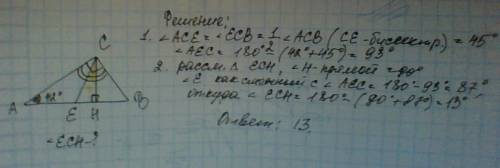 Решение:
1. ∠ACE = ∠ECB = 1/2 ∠ACB (CE-биссектр.) = 45°
∠AEC = 180° - (42° + 45°) = 93°
2. рассм. Δ ECH, ∠H-прямой = 90°
∠E как смежный с ∠AEC = 180° - 93° = 87°
откуда ∠ECH = 180° - (90° + 87°) = 13°
Ответ: 13.
C
42°
A E H B
∠ECH - ?